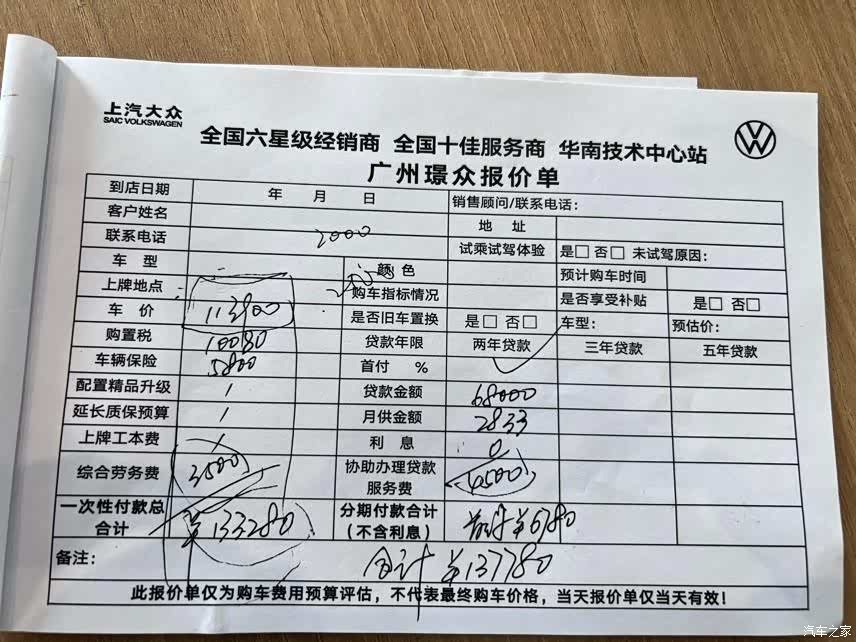 上汽大众
SAIC VOLKSWAGEN
全国六星级经销商 全国十佳服务商 华南技术中心站
广州璟众报价单
到店日期 年 月 日 销售顾问/联系电话：
客户姓名 地 址
联系电话 2000 试乘试驾体验 是□ 否□ 未试驾原因：
车 型 颜 色 预计购车时间
上牌地点 购车指标情况 是否享受补贴 是□ 否□
车 价 113900 是否旧车置换 是□ 否□ 车型： 预估价：
购置税 10080 贷款年限 两年贷款 三年贷款 五年贷款
车辆保险 5800 首付 %
配置精品升级 / 贷款金额 68000
延长质保预算 / 月供金额 2833
上牌工本费 / 利 息 0
综合劳务费 3500 协助办理贷款服务费 4500
一次性付款总合计 ¥133280 分期付款合计（不含利息）
备注： 合计 ¥137780
此报价单仅为购车费用预算评估，不代表最终购车价格，当天报价单仅当天有效！
汽车之家